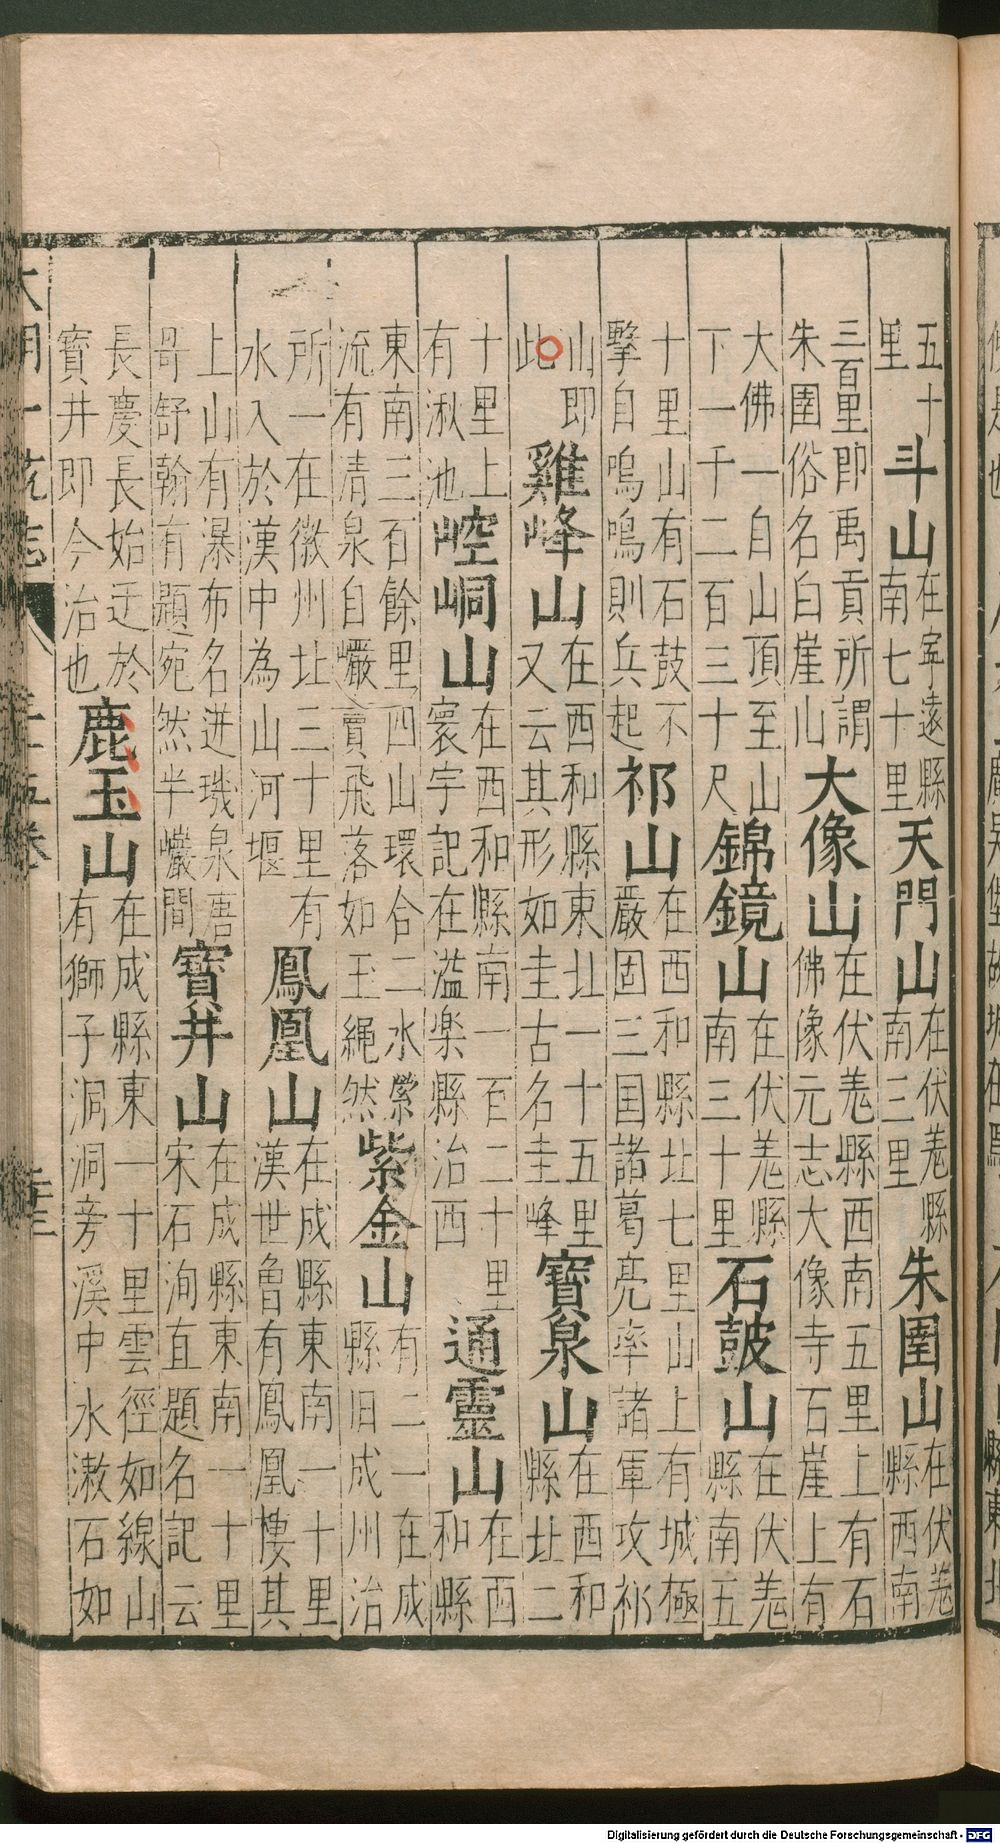 五十里斗山在寧遠縣南七十里天門山在伏羌縣南三里朱圉山在伏羌縣西南
三百里即禹貢所謂朱圉俗名白崖山大像山在伏羌縣西南五里上有石佛像元志大像寺石崖上有
大佛一自山頂至山下一千二百三十尺錦鏡山在伏羌縣南三十里石鼓山在伏羌縣南五
十里山有石鼓不擊自鳴鳴則兵起祁山在西和縣北七里山上有城極嚴固三国諸葛亮率諸軍攻祁
山即此雞峰山在西和縣東北一十五里又云其形如圭古名圭峰寶泉山在西和縣北二
十里上有湫池崆峒山在西和縣南一百二十里寰宇記在溢樂縣治西通靈山在西和縣
東南三石餘里四山環合二水縈流有清泉自巖竇飛落如玉繩然紫金山有二一在成縣旧成州治
所一在徽州北三十里有水入於漢中為山河堰鳳凰山在成縣東南一十里漢世魯有鳳凰棲其
上山有瀑布名迸璣泉唐哥舒翰有題宛然半巖間寶井山在成縣東南一十里宋石洵直題名記云
長慶長始迁於寶井即今治也鹿玉山在成縣東一十里雲徑如線山有獅子洞洞旁溪中水漱石如
大明一統志 三十五卷
Digitalisierung gefördert durch die Deutsche Forschungsgemeinschaft - DFG